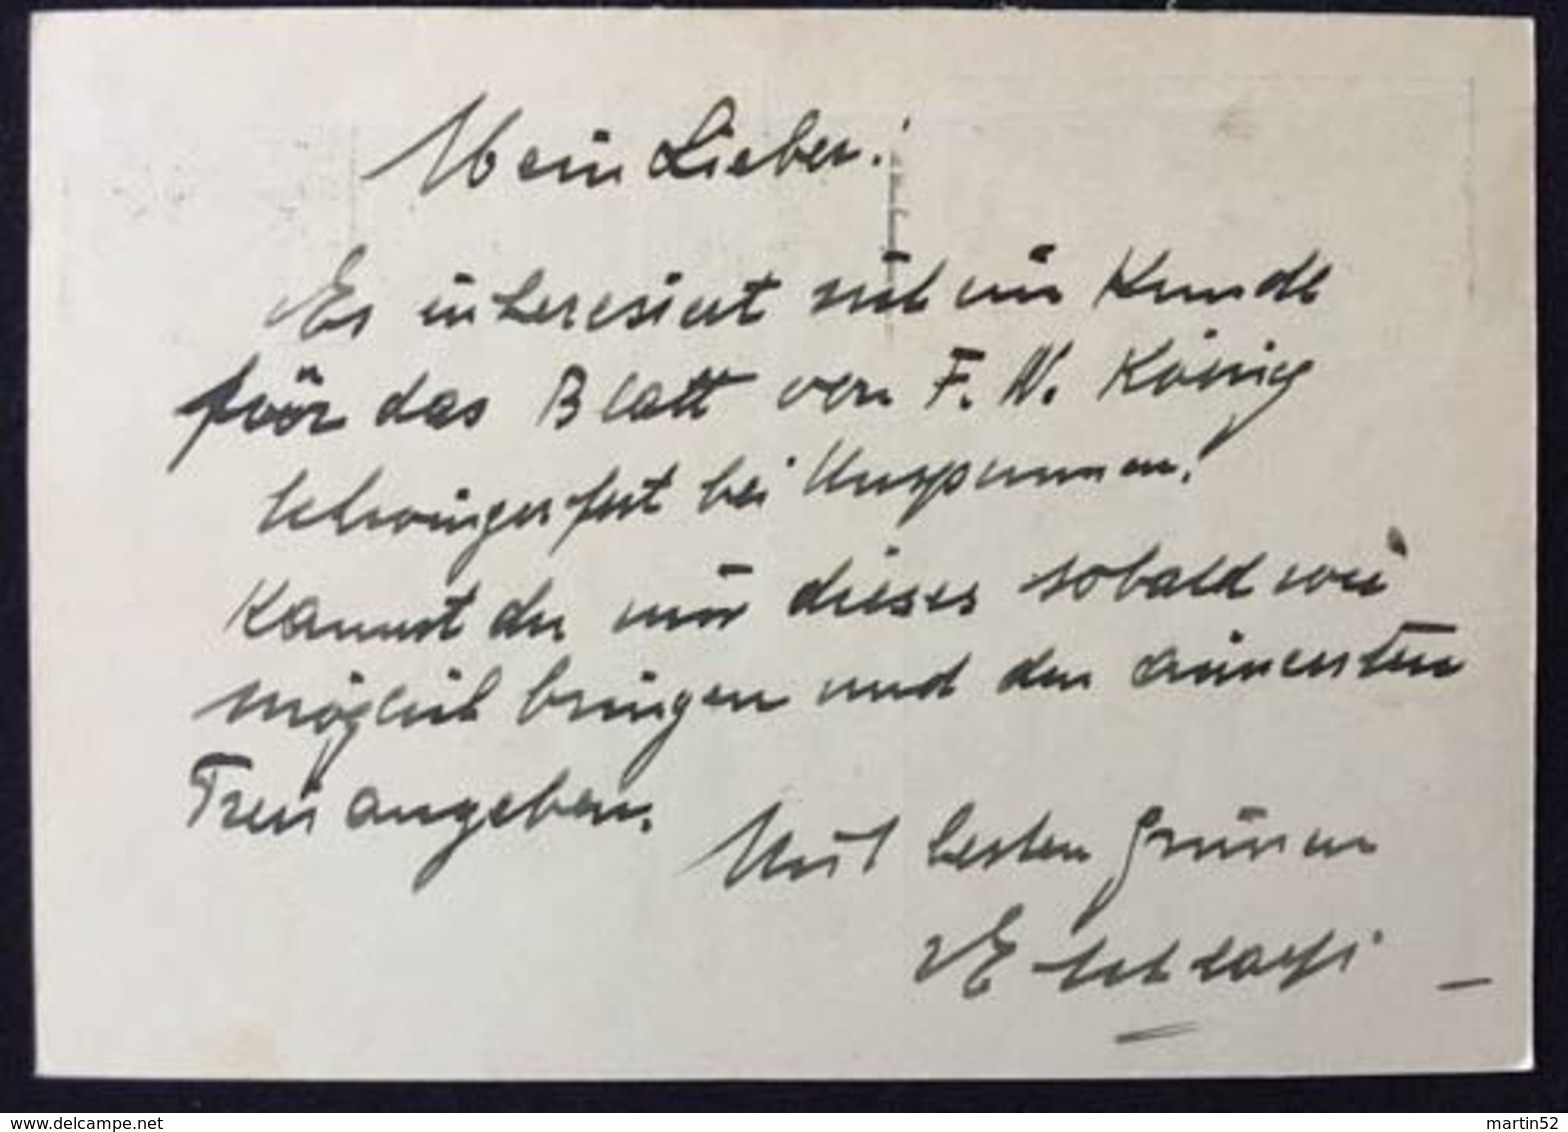 Mein Lieber!
Es interesiert sich ein Kunde
für das Blatt von F. N. König
Schwingerfest bei Unspunnen.
Kannst du mir dieses sobald wie
möglich bringen und den äinersten
Preis angeben.
Mit besten Grüssen
E
www.delcampe.net
martin52